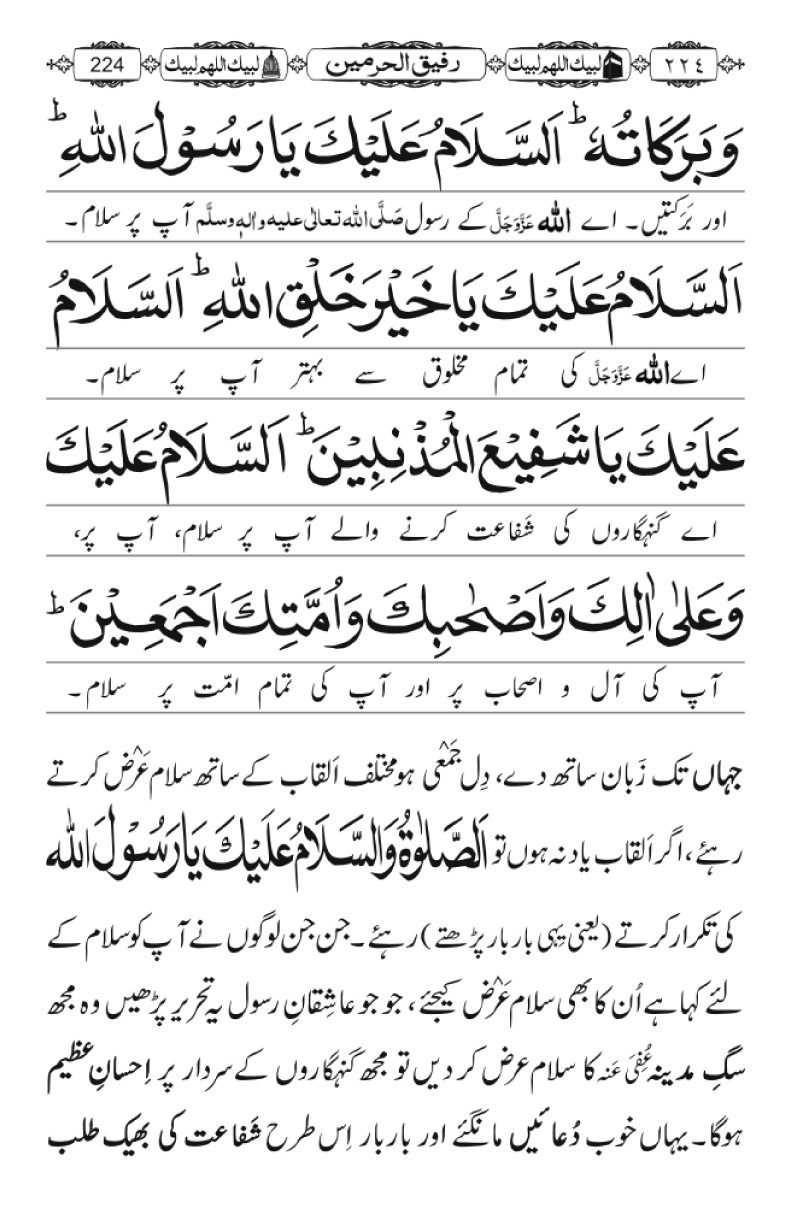 ٢٢٤ لبيك اللهم لبيك رفیق الحرمین لبيك اللهم لبيك 224
وَبَرَكَاتُهٗ ؕ اَلسَّلَامُ عَلَيْكَ يَا رَسُوْلَ اللهِ ؕ
اور بَرَکتیں۔ اے اللہ عَزَّوَجَلَّ کے رسول صَلَّى اللهُ تعالٰى عليه واٰلہٖ وسلَّم آپ پر سلام۔
اَلسَّلَامُ عَلَيْكَ يَا خَيْرَ خَلْقِ اللهِ ؕ اَلسَّلَامُ
اے اللہ عَزَّوَجَلَّ کی تمام مخلوق سے بہتر آپ پر سلام۔
عَلَيْكَ يَا شَفِيْعَ الْمُذْنِبِيْنَ ؕ اَلسَّلَامُ عَلَيْكَ
اے گنہگاروں کی شَفاعت کرنے والے آپ پر سلام، آپ پر،
وَعَلٰى اٰلِكَ وَاَصْحٰبِكَ وَاُمَّتِكَ اَجْمَعِيْنَ ؕ
آپ کی آل و اصحاب پر اور آپ کی تمام امّت پر سلام۔
جہاں تک زَبان ساتھ دے، دِل جَمْعی ہو مختلف اَلقاب کے ساتھ سلام عَرْض کرتے
رہئے، اگر اَلقاب یاد نہ ہوں تو اَلصَّلٰوةُ وَالسَّلَامُ عَلَيْكَ يَا رَسُوْلَ الله
کی تکرار کرتے (یعنی یہی بار بار پڑھتے) رہئے۔ جن جن لوگوں نے آپ کو سلام کے
لئے کہا ہے اُن کا بھی سلام عَرْض کیجئے، جو جو عاشِقانِ رسول یہ تحریر پڑھیں وہ مجھ
سگِ مدینہ عُفِیَ عَنہ کا سلام عرض کر دیں تو مجھ گنہگاروں کے سردار پر اِحسانِ عظیم
ہوگا۔ یہاں خوب دُعائیں مانگئے اور بار بار اِس طرح شَفاعت کی بھیک طلب